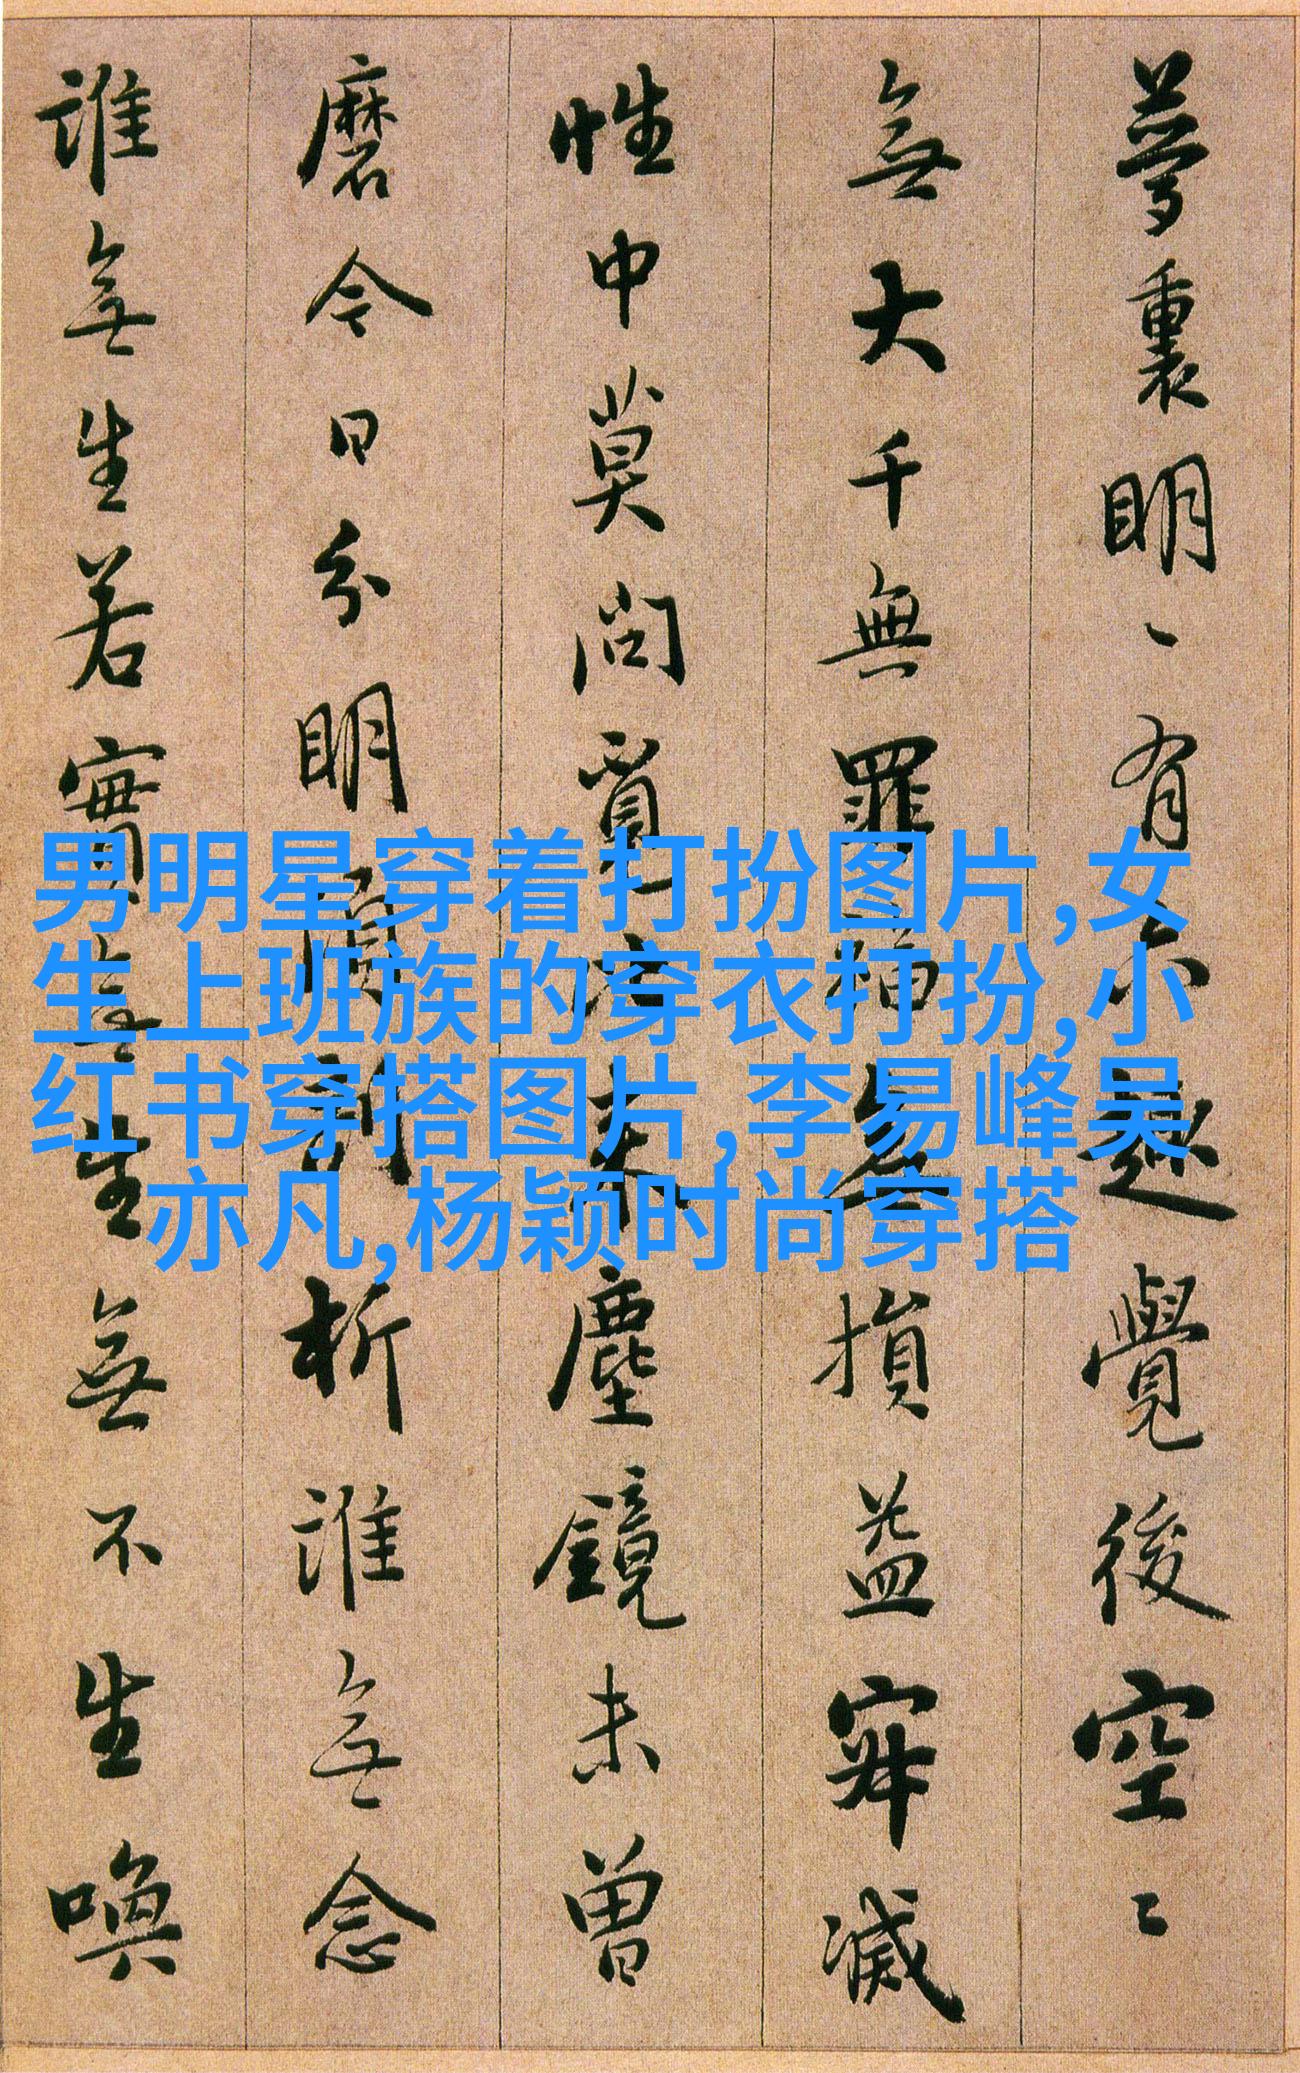 夢裏明々有六趣覺後空々
無大千無罪福無損益寂滅
性中莫問覓比来塵鏡未曾
磨今日分明須剖析誰無念
誰無生若實無生無不生喚
男明星穿着打扮图片,女
生上班族的穿衣打扮,小
红书穿搭图片,李易峰吴
亦凡,杨颖时尚穿搭